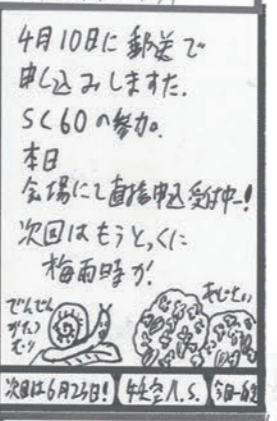 4月10日に郵送で
申し込みしますた.
SC60の参加。
本日
会場にて直接申込受付中ー!
次回はもうとっくに
梅雨時か!
でんでん
むり
あじさい
次回は6月23日!